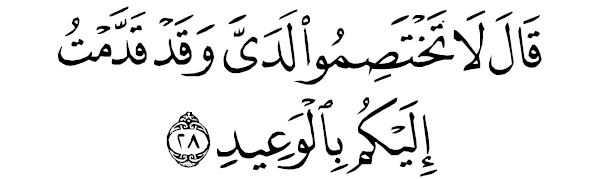 قَالَ لَا تَخْتَصِمُوا۟ لَدَىَّ وَقَدْ قَدَّمْتُ
إِلَيْكُم بِٱلْوَعِيدِ ۝٢٨